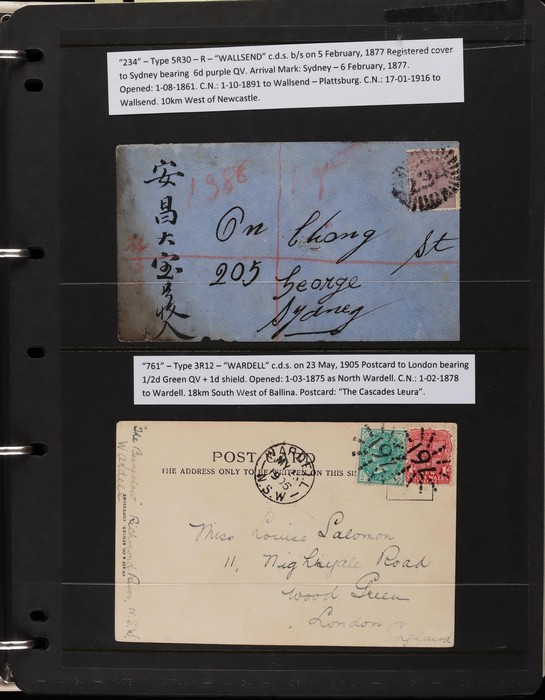 "234" – Type 5R30 – R – "WALLSEND" c.d.s. b/s on 5 February, 1877 Registered cover
to Sydney bearing 6d purple QV. Arrival Mark: Sydney – 6 February, 1877.
Opened: 1-08-1861. C.N.: 1-10-1891 to Wallsend – Plattsburg. C.N.: 17-01-1916 to
Wallsend. 10km West of Newcastle.
安昌大宝号收入
1388
Registered
234
On Chong
205 George St
Sydney
"761" – Type 3R12 – "WARDELL" c.d.s. on 23 May, 1905 Postcard to London bearing
1/2d Green QV + 1d shield. Opened: 1-03-1875 as North Wardell. C.N.: 1-02-1878
to Wardell. 18km South West of Ballina. Postcard: "The Cascades Leura".
"The Bungalow" Richmond River, N.S.W.
Wardell
POST CARD
THE ADDRESS ONLY TO BE WRITTEN ON THIS SIDE
WARDELL
MY
1905
N.S.W
Miss Louise Salomon
11, Nightingale Road
Wood Green
London
England